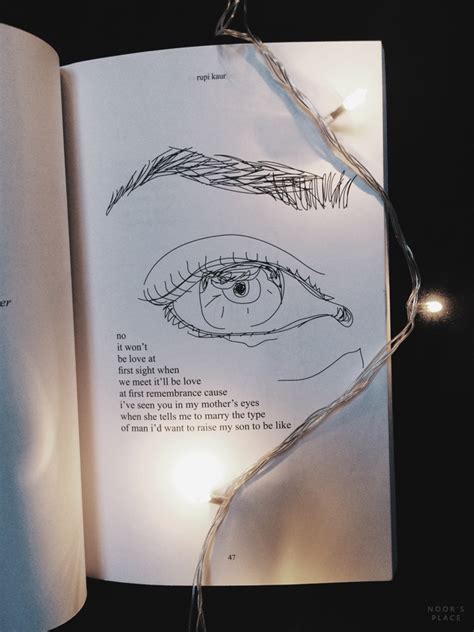 rupi kaur
er
no
it won't
be love at
first sight when
we meet it'll be love
at first remembrance cause
i've seen you in my mother's eyes
when she tells me to marry the type
of man i'd want to raise my son to be like
47
NOOR'S
PLACE